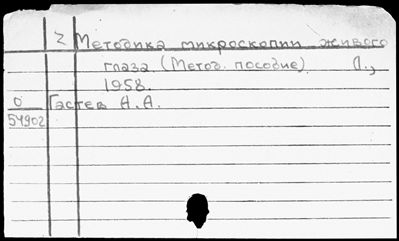 2 Методика микроскопии живого
глаза (Метод. пособие) Л.,
1958.
0 Гастев А.А.
54902